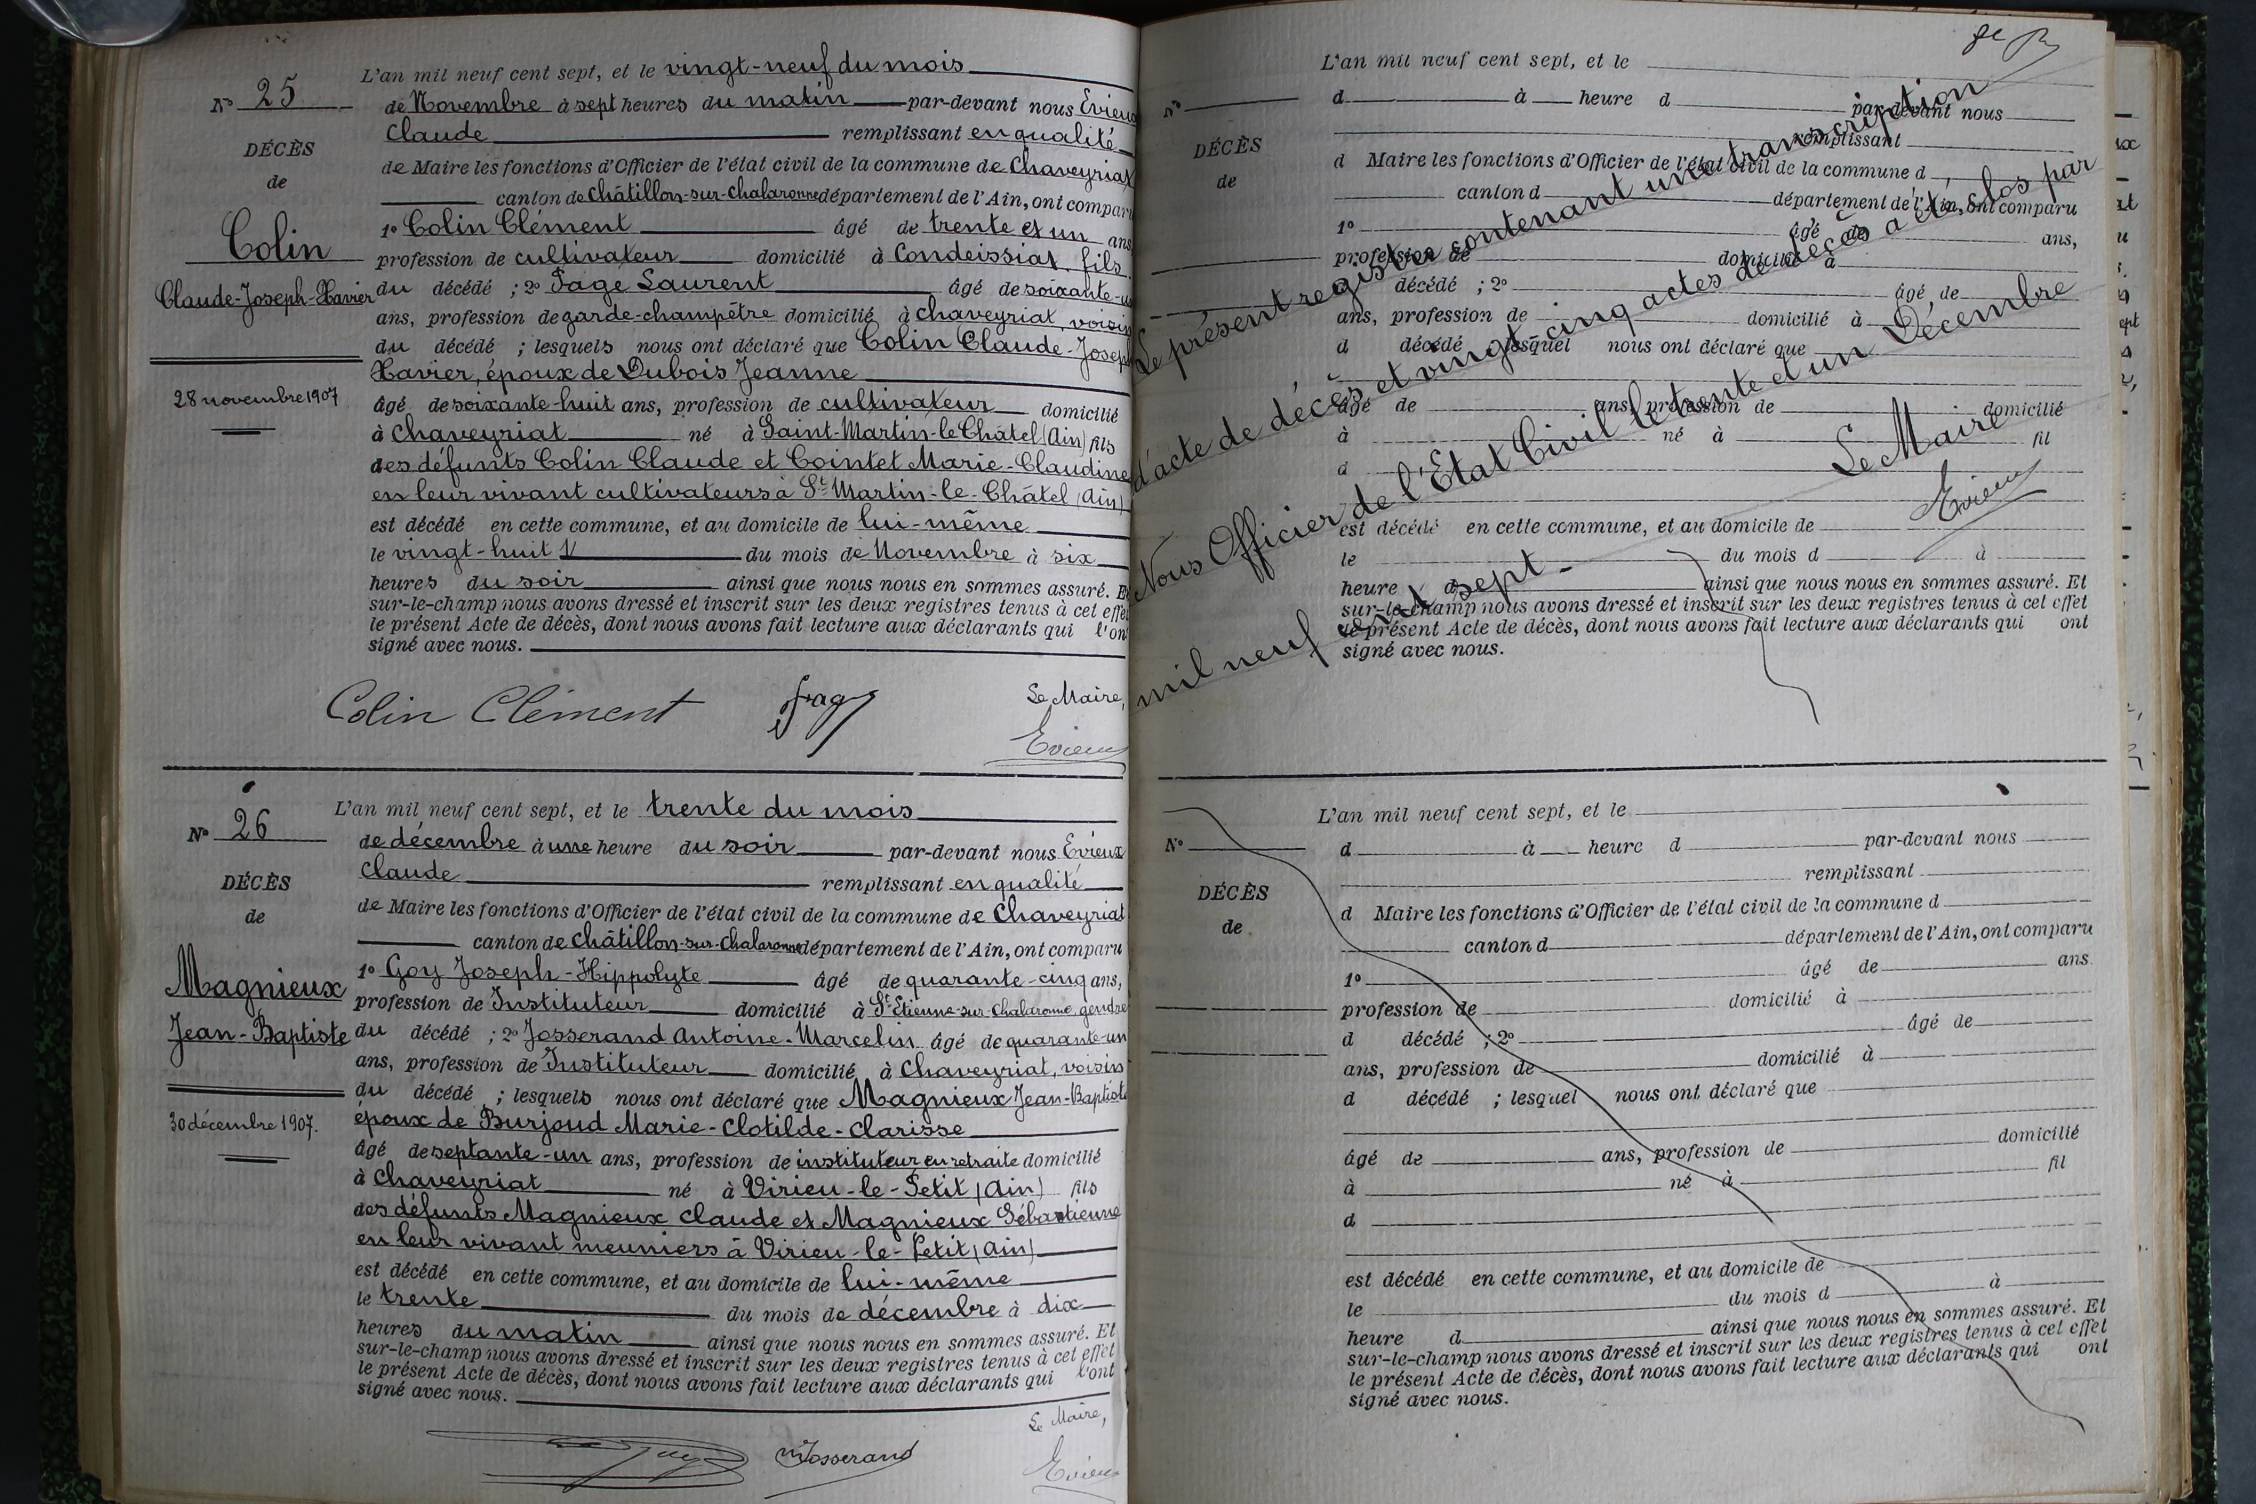 L'an mil neuf cent sept, et le vingt-neuf du mois
N° 25
de Novembre à sept heures du matin par-devant nous Evieux
Claude remplissant en qualité
DÉCÈS
de Maire les fonctions d'Officier de l'état civil de la commune de Chaveyriat
de
canton de Châtillon-sur-Chalaronne département de l'Ain, ont comparu
1° Colin Clément âgé de trente et un ans
Colin
profession de cultivateur domicilié à Condeissiat, fils
Claude-Joseph-Xavier
du décédé ; 2° Page Laurent âgé de soixante-un
ans, profession de garde-champêtre domicilié à Chaveyriat, voisin
du décédé ; lesquels nous ont déclaré que Colin Claude-Joseph
Xavier, époux de Dubois Jeanne
28 novembre 1907
âgé de soixante-huit ans, profession de cultivateur domicilié
à Chaveyriat né à Saint-Martin-le-Châtel (Ain) fils
des défunts Colin Claude et Cointet Marie-Claudine
en leur vivant cultivateurs à St Martin-le-Châtel (Ain)
est décédé en cette commune, et au domicile de lui-même
le vingt-huit du mois de Novembre à six
heures du soir ainsi que nous nous en sommes assuré. Et
sur-le-champ nous avons dressé et inscrit sur les deux registres tenus à cet effet
le présent Acte de décès, dont nous avons fait lecture aux déclarants qui l'ont
signé avec nous.
Colin Clément Page Le Maire,
Evieux
L'an mil neuf cent sept, et le trente du mois
N° 26
de décembre à une heure du soir par-devant nous Evieux
Claude remplissant en qualité
DÉCÈS
de Maire les fonctions d'Officier de l'état civil de la commune de Chaveyriat
de
canton de Châtillon-sur-Chalaronne département de l'Ain, ont comparu
1° Goy Joseph-Hippolyte âgé de quarante-cinq ans,
Magnieux
profession de Instituteur domicilié à St-Etienne-sur-Chalaronne, gendre
Jean-Baptiste
du décédé ; 2° Josserand Antoine-Marcelin âgé de quarante-un
ans, profession de Instituteur domicilié à Chaveyriat, voisin
du décédé ; lesquels nous ont déclaré que Magnieux Jean-Baptiste
30 décembre 1907.
époux de Burjoud Marie-Clotilde-Clarisse
âgé de septante-un ans, profession de instituteur en retraite domicilié
à Chaveyriat né à Virieu-le-Petit (Ain) fils
des défunts Magnieux Claude et Magnieux Sébastienne
en leur vivant meuniers à Virieu-le-Petit (Ain)
est décédé en cette commune, et au domicile de lui-même
le trente du mois de décembre à dix
heures du matin ainsi que nous nous en sommes assuré. Et
sur-le-champ nous avons dressé et inscrit sur les deux registres tenus à cet effet
le présent Acte de décès, dont nous avons fait lecture aux déclarants qui l'ont
signé avec nous.
Le Maire,
Josserand
Evieux
L'an mil neuf cent sept, et le
N°
d à heure d par-devant nous
remplissant
DÉCÈS
d Maire les fonctions d'Officier de l'état civil de la commune d
de
canton d département de l'Ain, ont comparu
1° âgé de ans,
profession de domicilié à
d décédé ; 2° âgé de
ans, profession de domicilié à
d décédé lesquel nous ont déclaré que
âgé de ans, profession de domicilié
à né à fil
d
est décédé en cette commune, et au domicile de
le du mois d à
heure d ainsi que nous nous en sommes assuré. Et
sur-le-champ nous avons dressé et inscrit sur les deux registres tenus à cet effet
le présent Acte de décès, dont nous avons fait lecture aux déclarants qui ont
signé avec nous.
Le présent registre contenant une transcription
d'acte de décès et vingt-cinq actes de décès a été clos par
Nous Officier de l'Etat Civil le trente et un Décembre
mil neuf cent sept.
Le Maire
Evieux
L'an mil neuf cent sept, et le
N°
d à heure d par-devant nous
remplissant
DÉCÈS
d Maire les fonctions d'Officier de l'état civil de la commune d
de
canton d département de l'Ain, ont comparu
1° âgé de ans
profession de domicilié à
d décédé ; 2° âgé de
ans, profession de domicilié à
d décédé ; lesquel nous ont déclaré que
âgé de ans, profession de domicilié
à né à fil
d
est décédé en cette commune, et au domicile de
le du mois d à
heure d ainsi que nous nous en sommes assuré. Et
sur-le-champ nous avons dressé et inscrit sur les deux registres tenus à cet effet
le présent Acte de décès, dont nous avons fait lecture aux déclarants qui ont
signé avec nous.